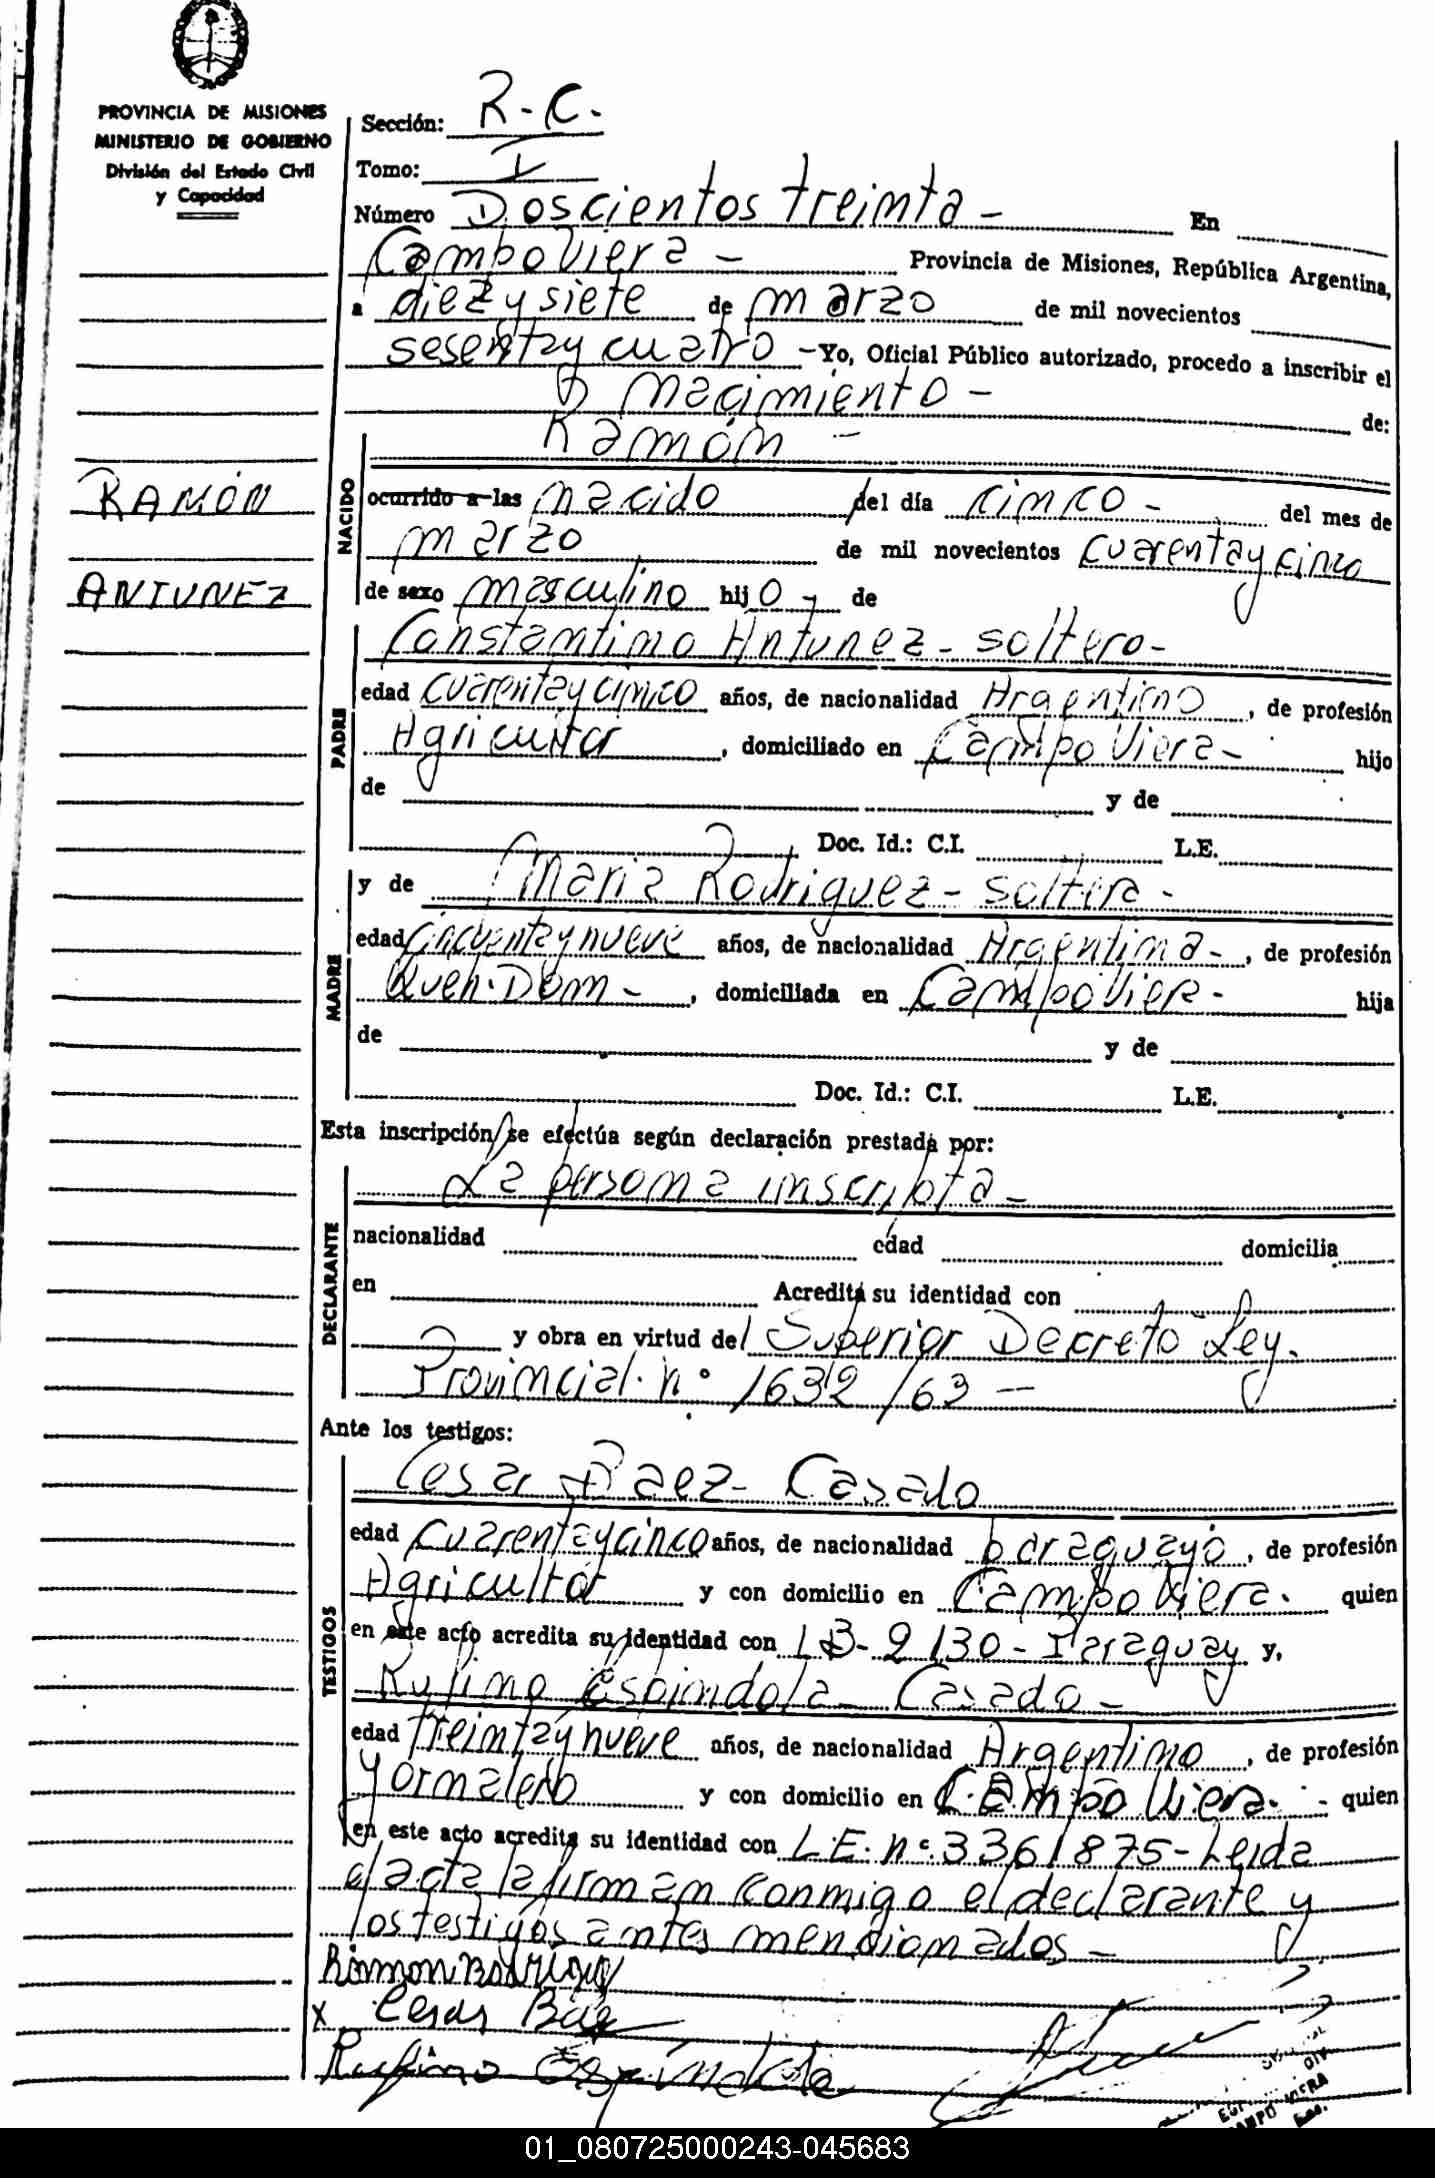 PROVINCIA DE MISIONES
MINISTERIO DE GOBIERNO
División del Estado Civil
y Capacidad
Sección: R-C.
Tomo: I
Número Doscientos treinta - En
Campo Viera - Provincia de Misiones, República Argentina,
a diez y siete de marzo de mil novecientos
sesentay cuatro - Yo, Oficial Público autorizado, procedo a inscribir el
nacimiento - de:
Ramón -
RAMÓN
ANTUNEZ
NACIDO
ocurrido a las nacido del día cinco - del mes de
marzo de mil novecientos cuarentay cinco
de sexo masculino hijo - de
PADRE
Constantino Antunez - soltero -
edad cuarentay cinco años, de nacionalidad Argentino, de profesión
Agricultor, domiciliado en Campo Viera - hijo
de y de
Doc. Id.: C.I. L.E.
MADRE
y de Maria Rodriguez - soltera -
edad cincuentay nueve años, de nacionalidad Argentina -, de profesión
Queh. Dom -, domiciliada en Campo Viera - hija
de y de
Doc. Id.: C.I. L.E.
Esta inscripción se efectúa según declaración prestada por:
DECLARANTE
La persona inscripta -
nacionalidad edad domicilia
en Acredita su identidad con
y obra en virtud del Superior Decreto Ley.
Provincial. n° 1632/63 -
Ante los testigos:
TESTIGOS
Cesar Baez - Casado
edad cuarentaycinco años, de nacionalidad paraguayo, de profesión
Agricultor y con domicilio en Campo Viera. quien
en este acto acredita su identidad con 1B-2130 - Paraguay y,
Rufino Espindola - Casado -
edad treintay nueve años, de nacionalidad Argentino, de profesión
Yornalero y con domicilio en Campo Viera. - quien
en este acto acredita su identidad con L.E. n°. 3361875 - Leida
el acta la firman conmigo el declarante y
los testigos antes mencionados -
Ramon Rodrigue
x Cesar Baez
Rufino Espindola
CAMPO VIERA
01_080725000243-045683